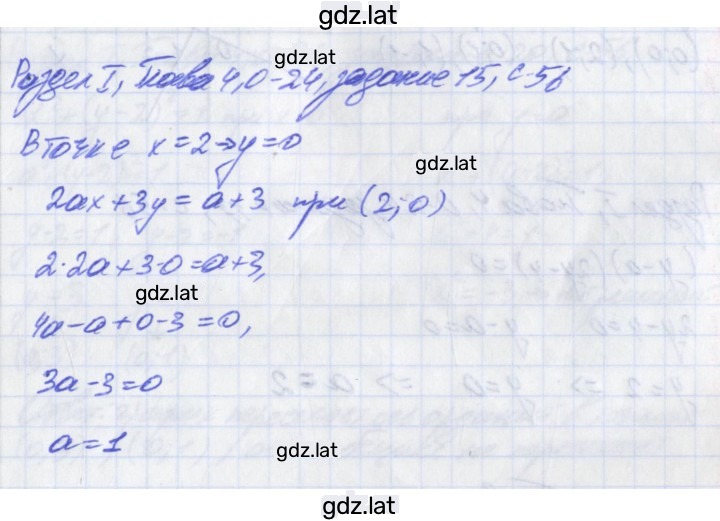 gdz.lat
Раздел I, Глава 4, О-24, задание 15, с 56
В точке x=2⇒y=0
gdz.lat
2ax+3y=a+3 при (2;0)
2·2a+3·0=a+3,
gdz.lat
4a-a+0-3=0,
3a-3=0
a=1
gdz.lat
gdz.lat